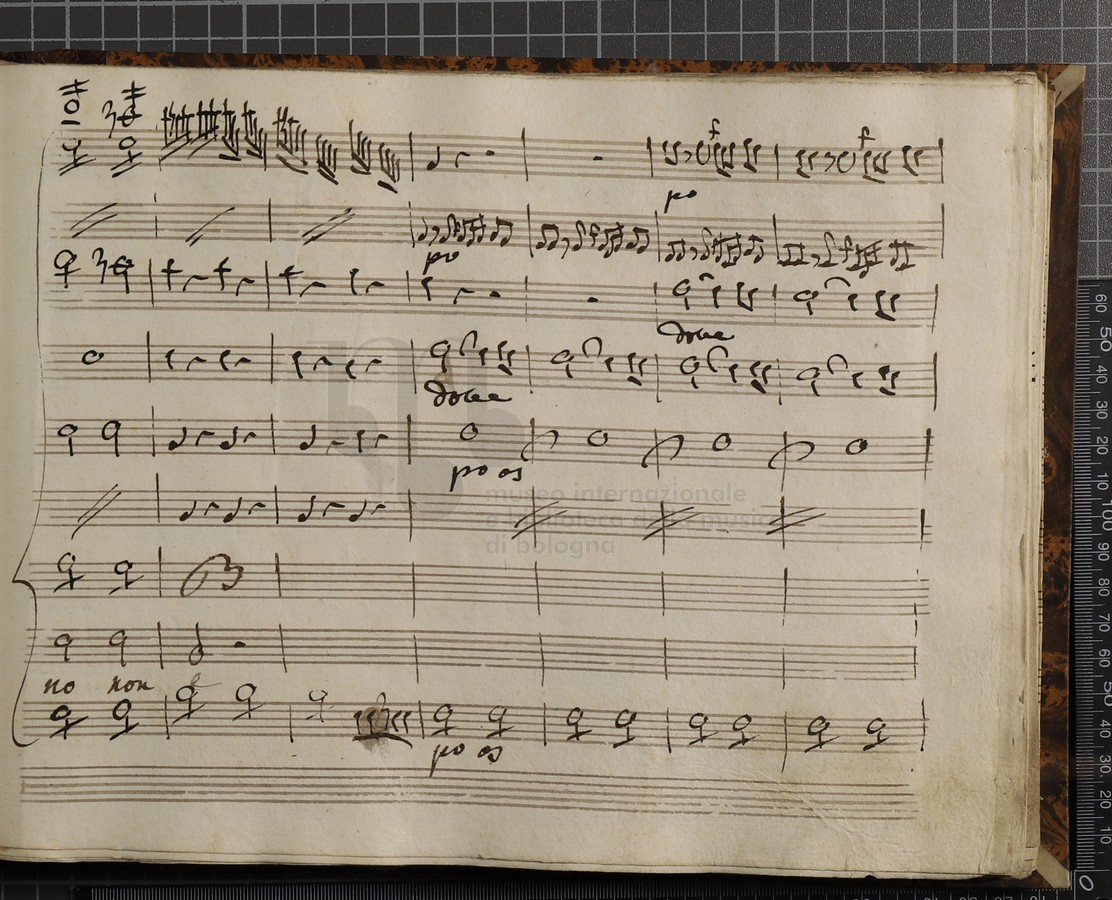 f
f
po
po
dolce
dolce
po as
museo internazionale
e biblioteca della musica
di bologna
no non
po as
60 50 40 30 20 10 100 90 80 70 60 50 40 30 20 10
0